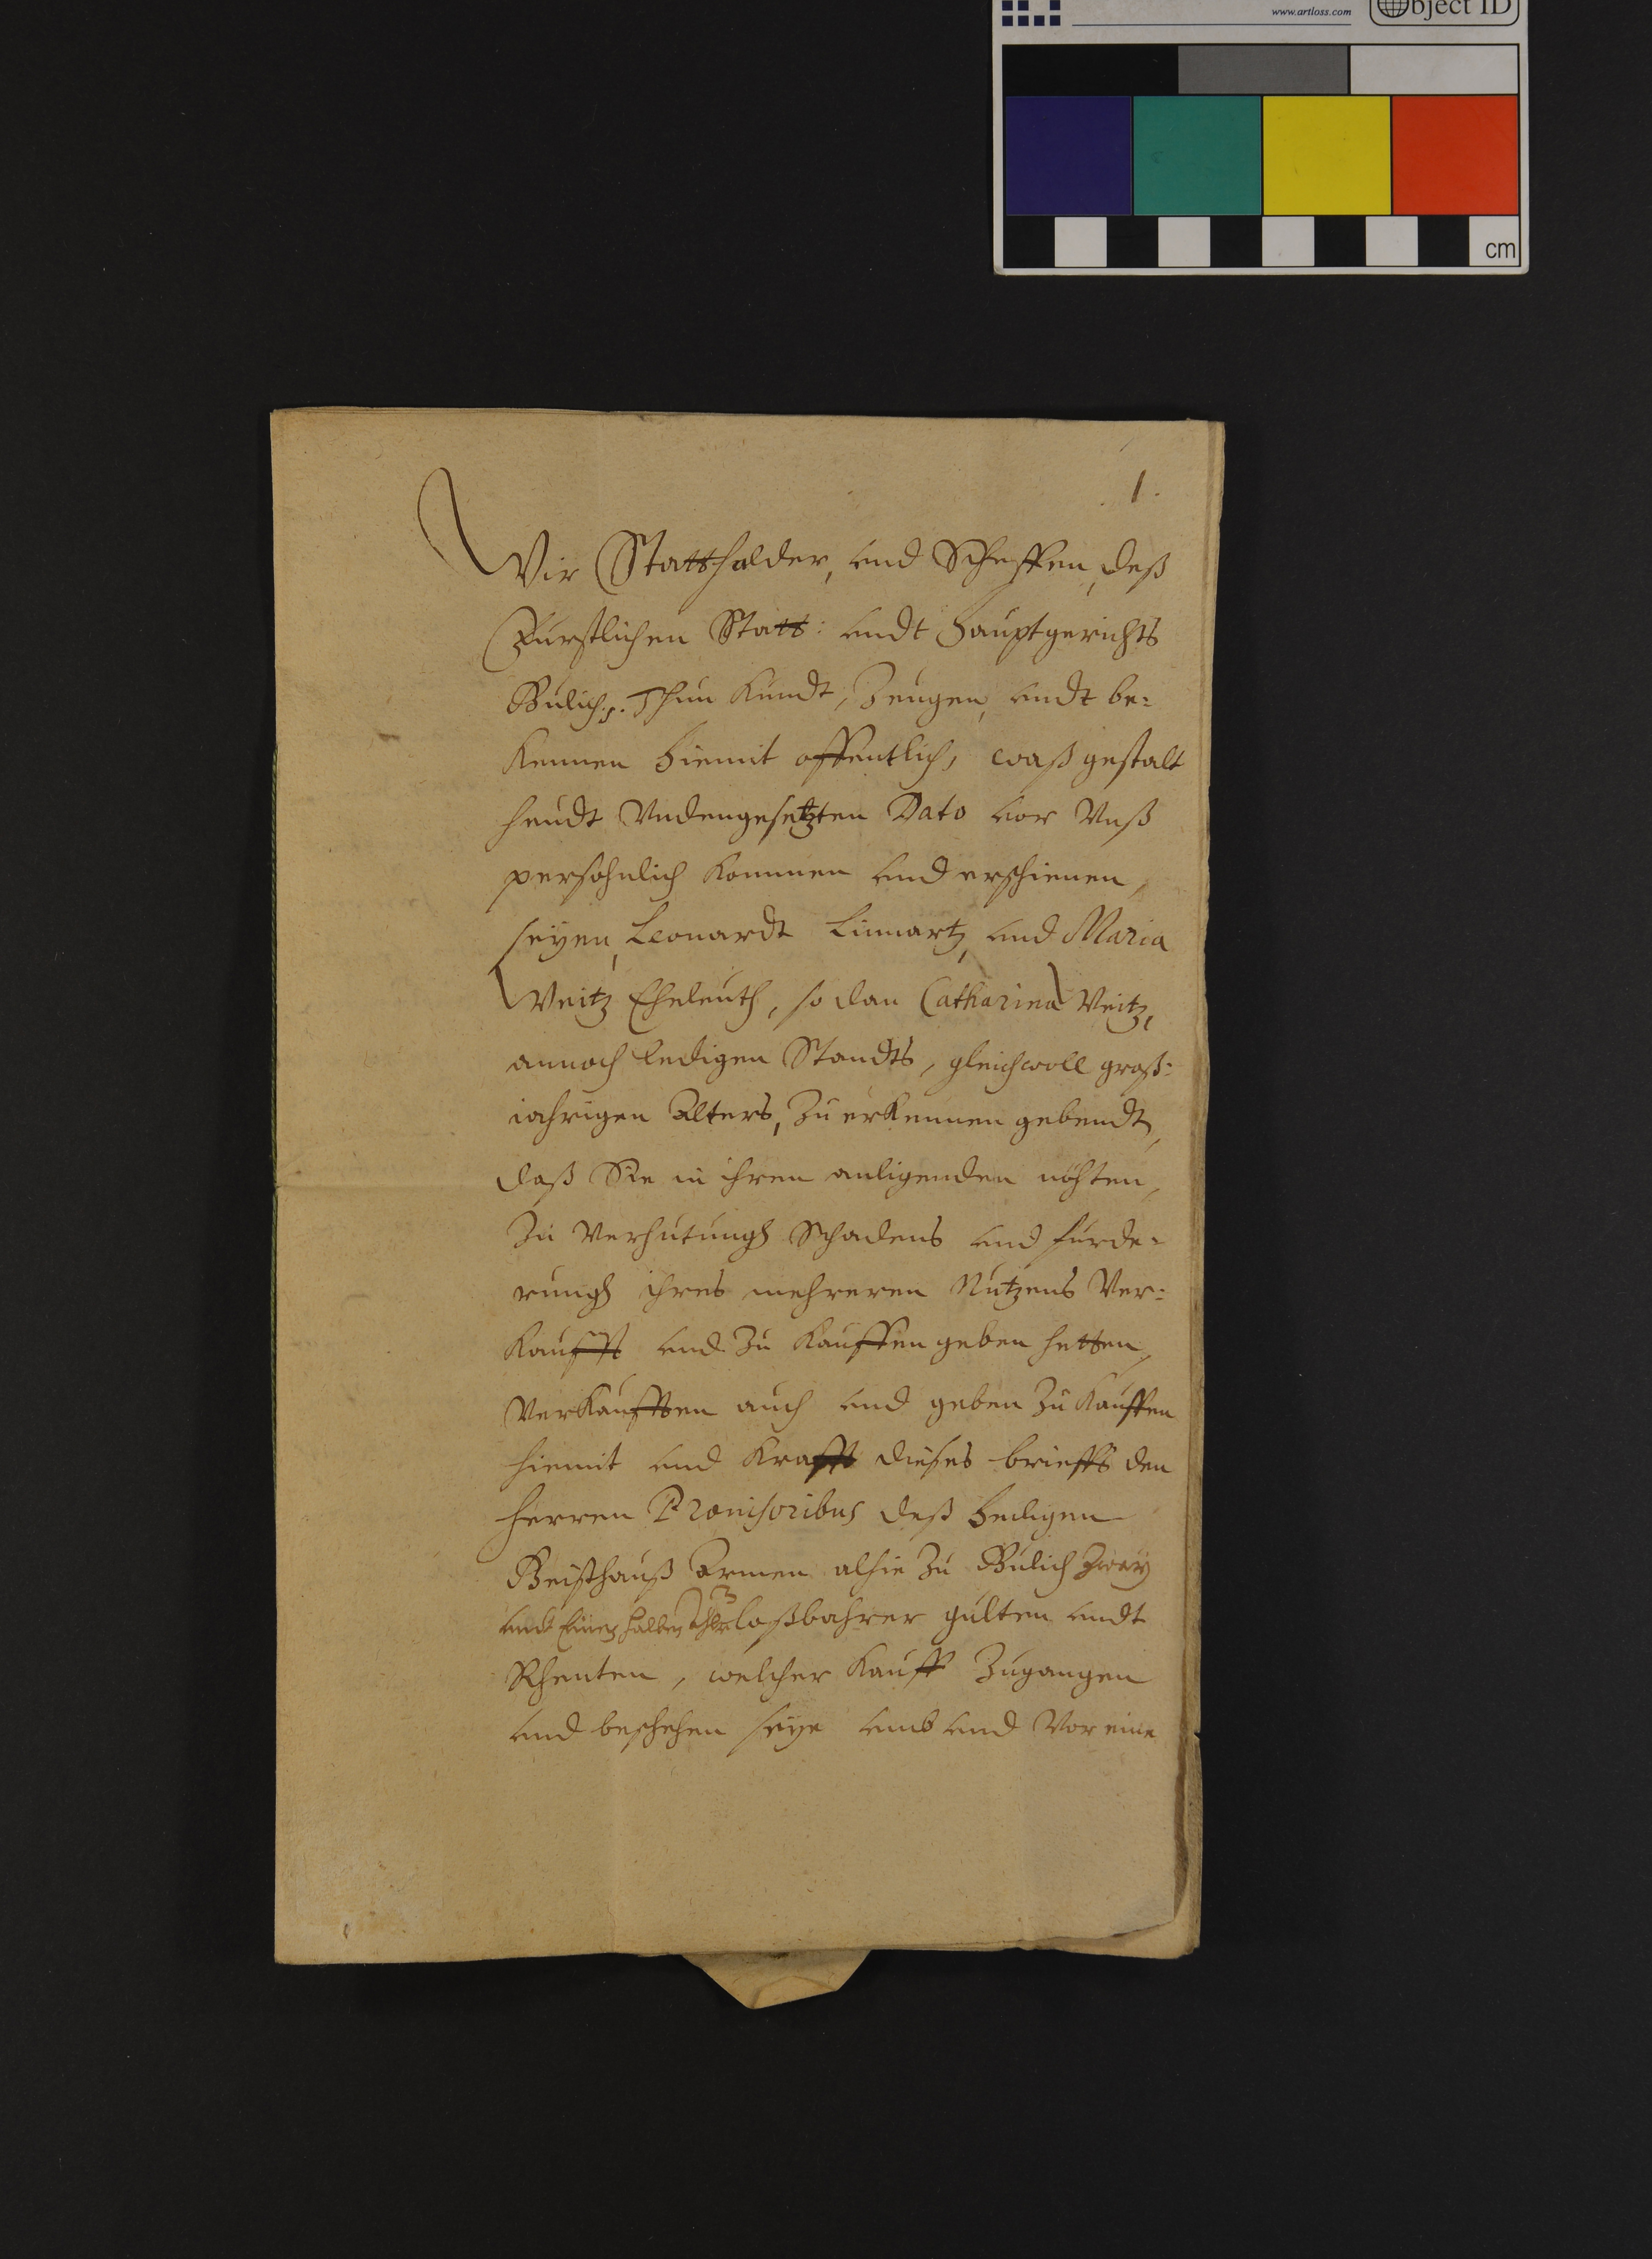 www.artloss.com
Object ID
cm
1.
Wir Statthalder, und Scheffen, deß
Fürstlichen Statt: undt Hauptgerichts
Gülich p. Thun kundt, Zeugen, undt be=
kennen hiemit offentlich, waß gestalt
heudt Undengesetzten Dato vor Unß
persohnlich kommen und erschienen,
seyen, Leonardt Linnartz, und Maria
Weitz Eheleuth, so dan Catharina Weitz,
annoch ledigen Standts, gleichwoll groß=
iahrigen Alters, Zu erkennen gebendt,
daß Sie in ihren anligenden nöhten,
Zu Verhütungh Schadens und furde=
rungh ihres mehreren Nutzens Ver=
kaufft und Zu kauffen geben hetten,
Verkaufften auch und geben Zu kauffen
hiemit und krafft dieses brieffs den
Herren Provisoribus deß Heiligen
Geisthauß Armen alhie Zu Gülich Zwey
undt Einen halben thlr loßbahrer gülten undt
Rhenten, welcher kauff Zugangen
und beschehen seye umb und Vor eine